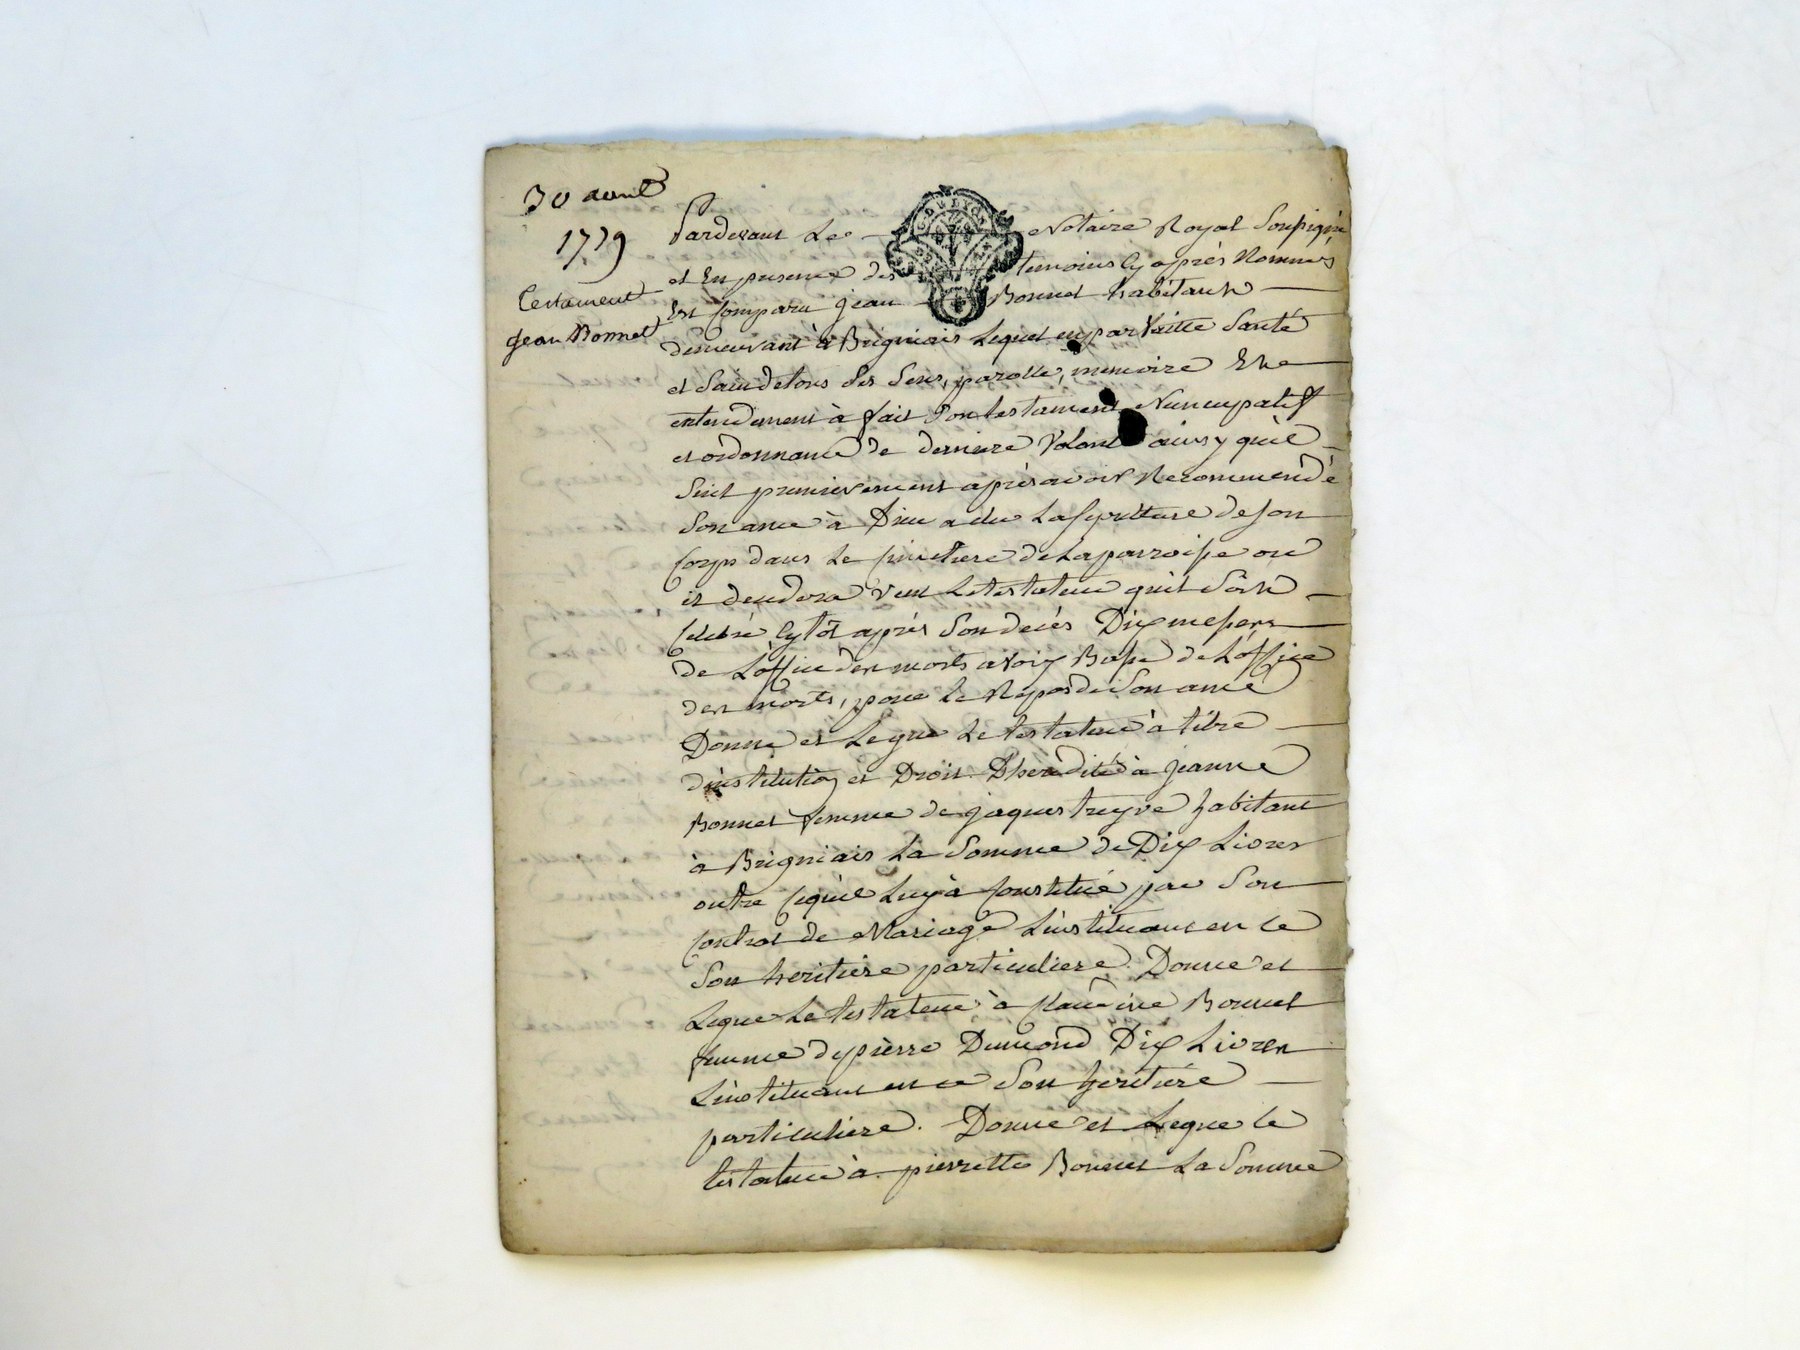 30 avril
1779
Testament
Jean Bonnet
G. DE LYON
Pardevant Le Notaire Royal Soussigné
et En presence des temoins Cy après Nommés
Est Comparu jean Bonnet habitant
demeurant à Brigniais Lequel en parfaitte Santé
et Sain de tous Ses Sens, parolle, memoire Et
entendement à fait Son testament Nuncupatif
et ordonnance de derniere Volonté ainsy qu'il
Suit premierement après avoir Recommendé
Son ame à Dieu a elu La Sepulture de Son
Corps dans Le Cimetiere de La parroisse ou
il decedera Veut Le testateur qu'il Soit
Celebré Sytôt après Son decés Dix messes
de L'office des morts a Voix Basse de L'office
des morts, pour Le Repos de Son ame
Donne et Legue Le testateur à titre
d'institution et Droit D'heredité à jeanne
Bonnet femme de jaques treyve habitant
à Brigniais La Somme de Dix Livres
outre Ce qu'il Luy à Constitué par Son
Contrat de Mariage L'instituant en Ce
Son heritiere particuliere. Donne et
Legue Le testateur à Claudine Bonnet
femme de pierre Dumond Dix Livres
L'instituant en ce Son heritiere
particuliere. Donne et Legue Le
testateur à pierrette Bonnet La Somme